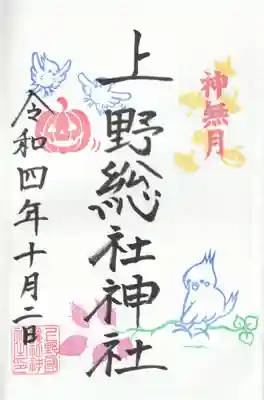 神無月
上野総社神社
令和四年十月二日